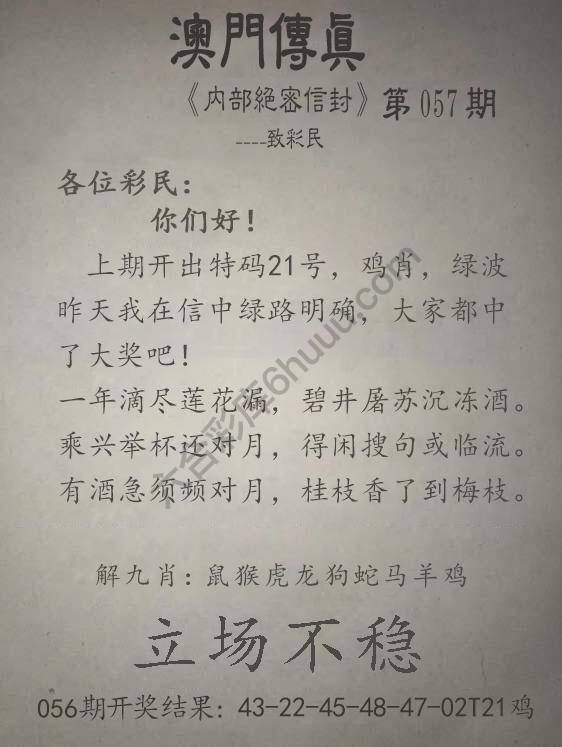 澳門傳眞
《内部絕密信封》第057期
----致彩民
各位彩民：
你们好！
上期开出特码21号，鸡肖，绿波
昨天我在信中绿路明确，大家都中
了大奖吧！
一年滴尽莲花漏，碧井屠苏沉冻酒。
乘兴举杯还对月，得闲搜句或临流。
有酒急须频对月，桂枝香了到梅枝。
六合彩库6huuu.com
解九肖：鼠猴虎龙狗蛇马羊鸡
立场不稳
056期开奖结果：43-22-45-48-47-02T21鸡